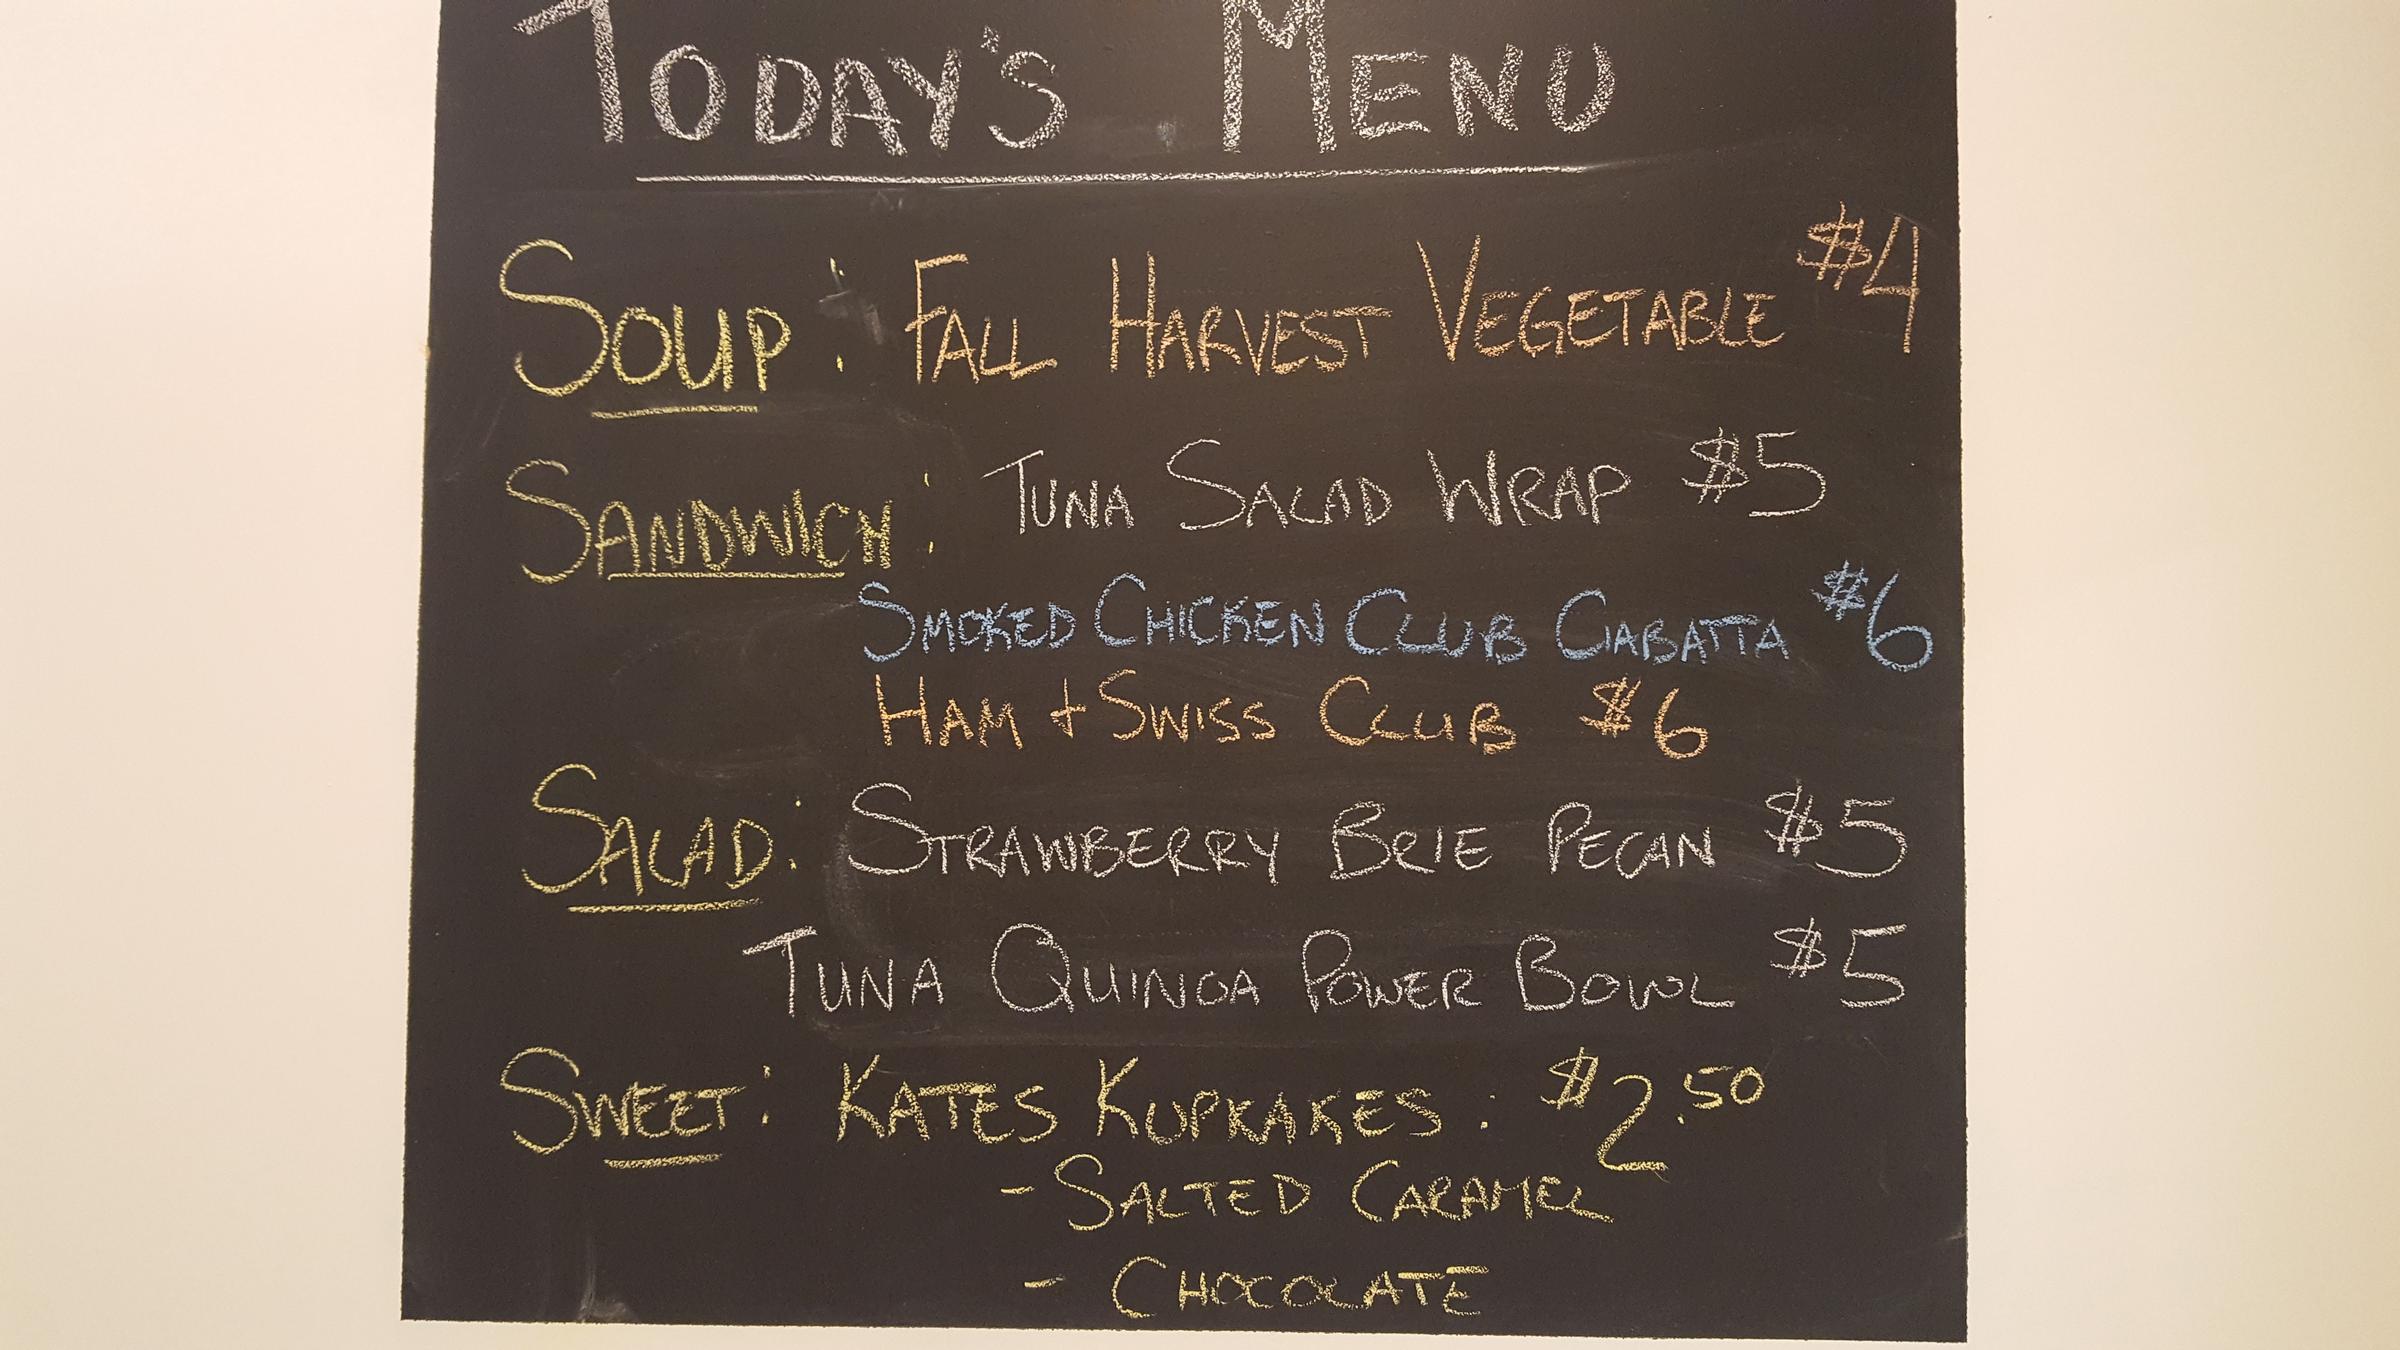 TODAY'S MENU
SOUP: FALL HARVEST VEGETABLE $4
SANDWICH: TUNA SALAD WRAP $5
SMOKED CHICKEN CLUB CIABATTA $6
HAM + SWISS CLUB $6
SALAD: STRAWBERRY BRIE PECAN $5
TUNA QUINOA POWER BOWL $5
SWEET: KATES KUPKAKES: $2.50
- SALTED CARAMEL
- CHOCOLATE